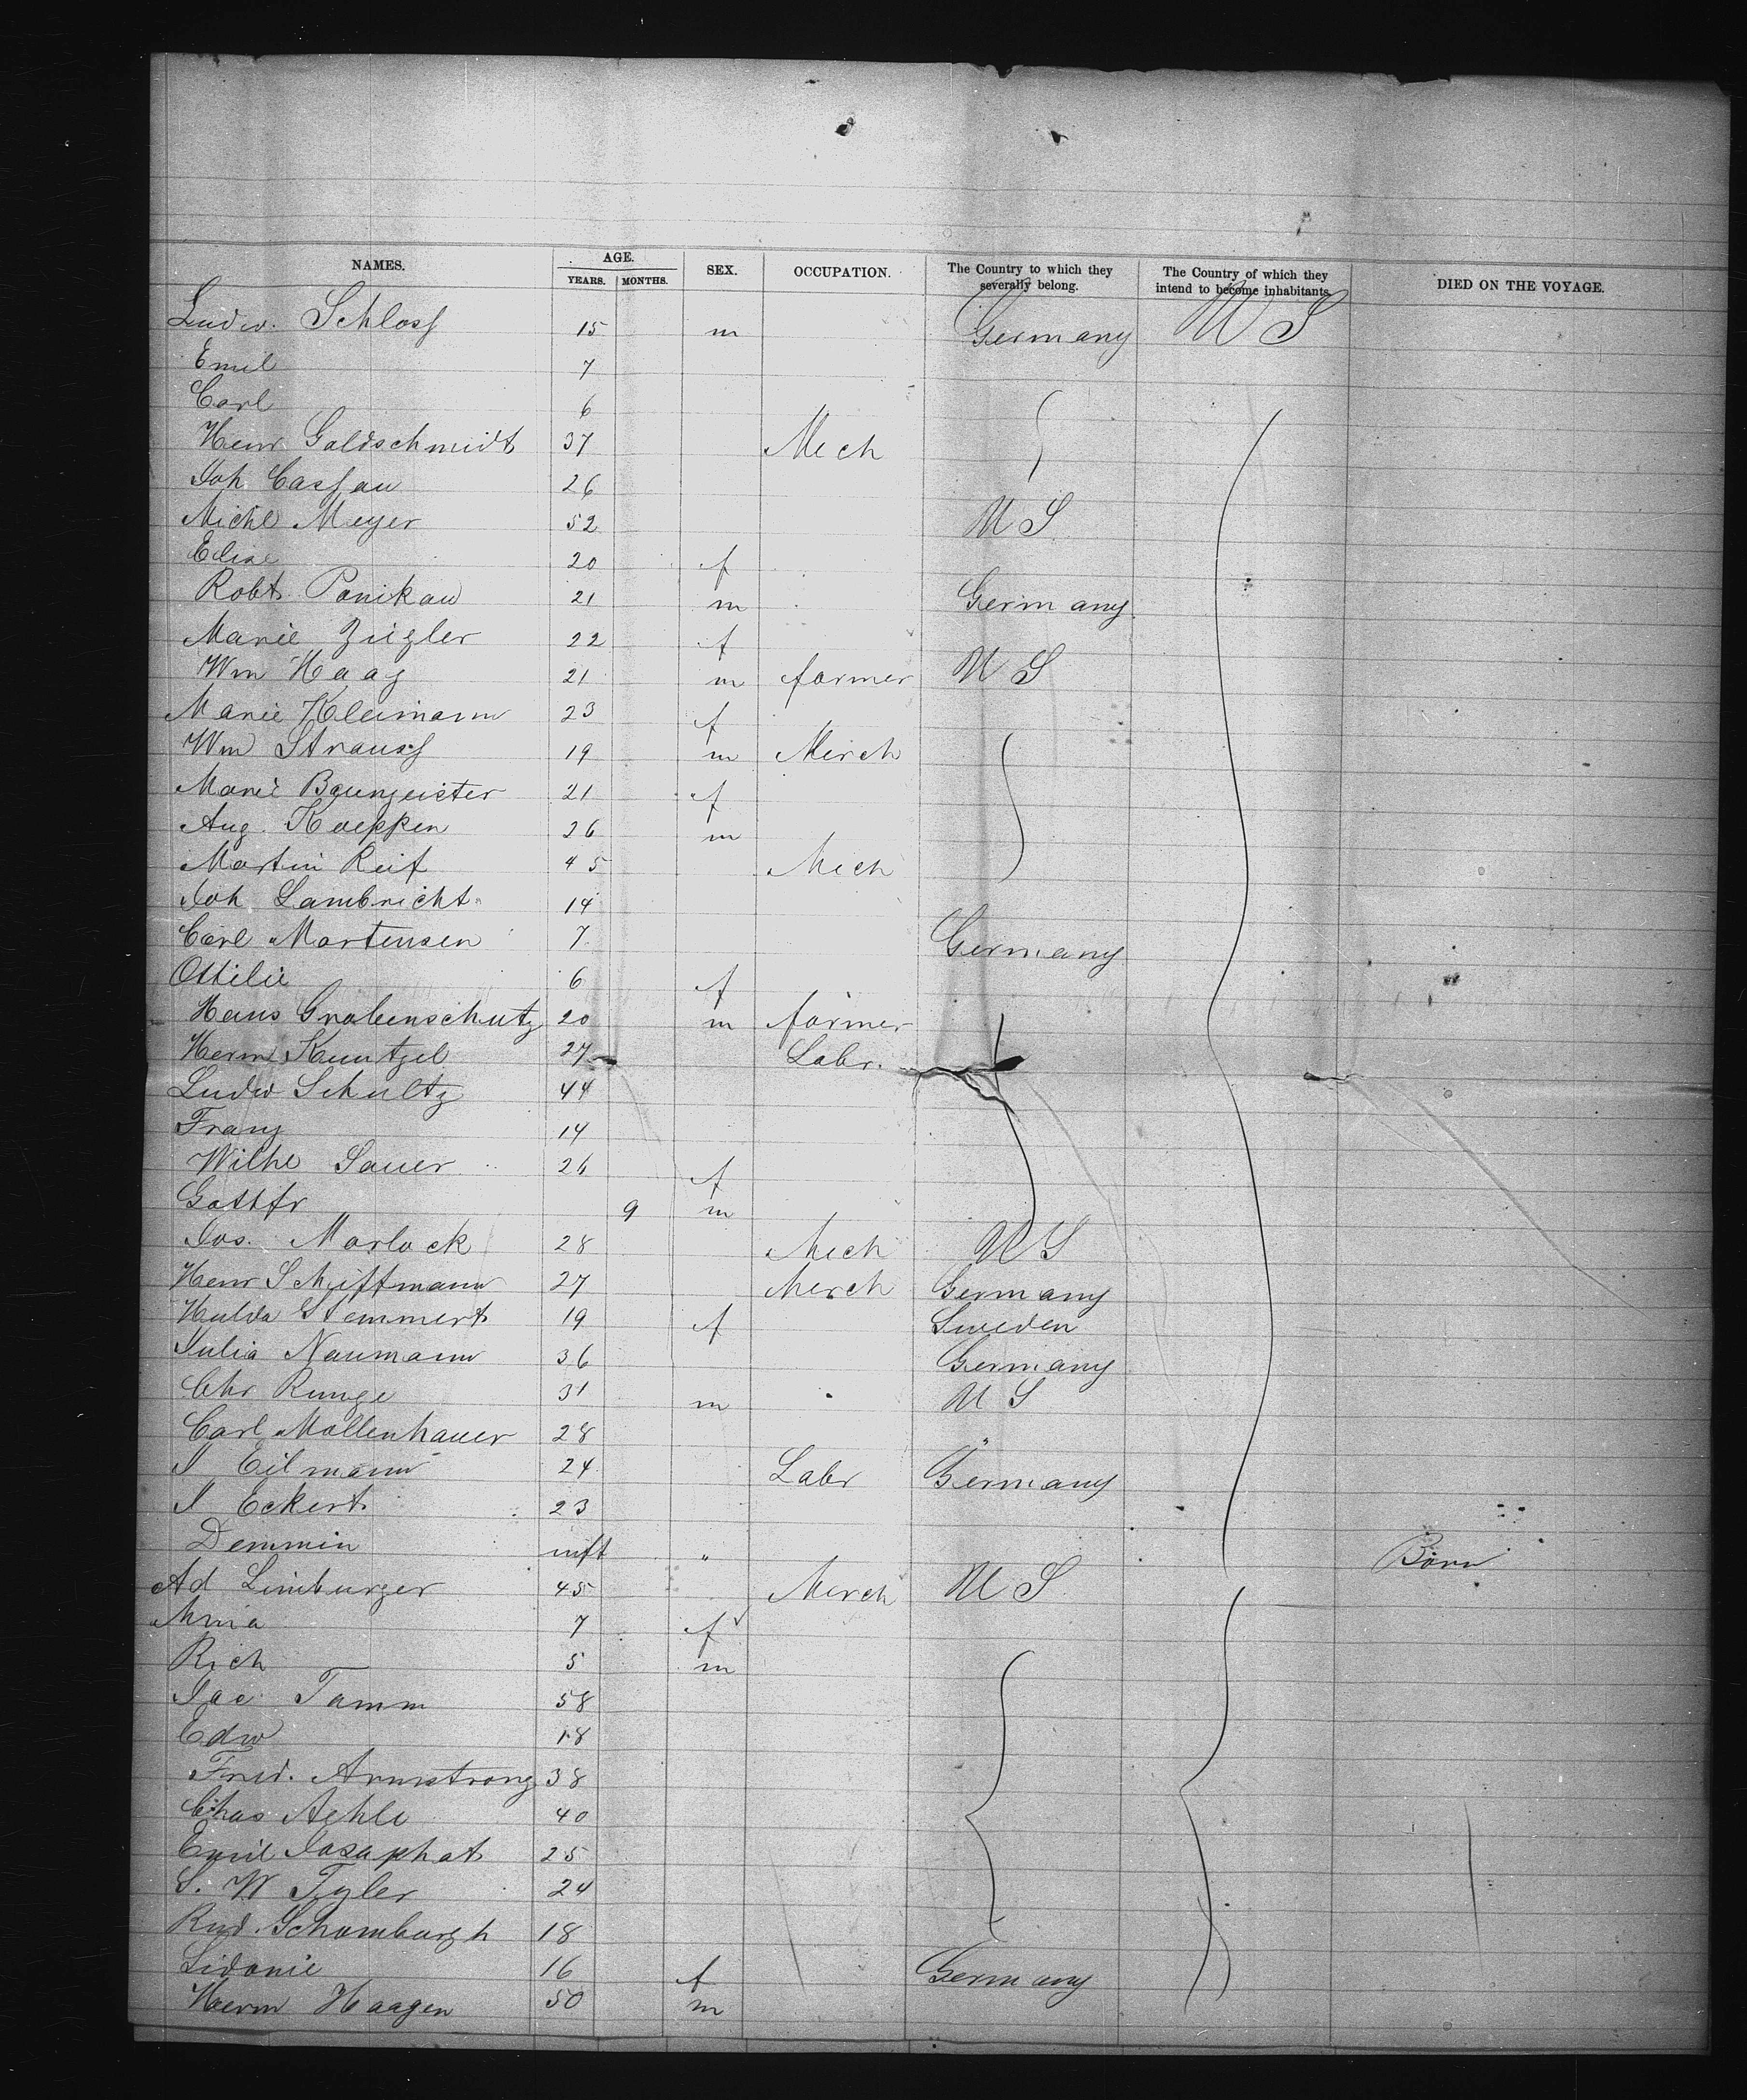 NAMES. AGE. SEX. OCCUPATION. The Country to which they severally belong. The Country of which they intend to become inhabitants. DIED ON THE VOYAGE.
YEARS. MONTHS.
Ludw. Schloss 15 m Germany U S
Emil 7
Carl 6
Henr Goldschmidt 37 Mech
Joh Cassau 26
Michl Meyer 52 U S
Elise 20 f
Robt Ponikau 21 m Germany
Marie Ziegler 22 f
Wm Haag 21 m farmer U S
Marie Kleimann 23 f
Wm Strauss 19 m Merch
Marie Baumeister 21 f
Aug. Koeppen 26 m
Martin Reif 45 Mech
Joh Lambricht 14
Carl Martensen 7 Germany
Ottilie 6 f
Hans Grabenschutz 20 m farmer
Herm Kuntzel 27 Labr.
Ludw Schultz 44
Franz 14
Wilhe Sauer 26 f
Gottfr 9 m
Jos. Morlock 28 Mech U S
Henr Schiffmann 27 Merch Germany
Hulda Stemmert 19 f Sweden
Julia Naumann 36 Germany
Chr Runge 31 m U S
Carl Mollenhauer 28 "
J Eilmann 24 Labr Germany
J Eckert 23
Demmin inft " Born
Ad Limburger 45 Merch U S
7 f
Rich 5 m
Jac Tamm 58
Edw 18
Fred. Armstrong 38
Chas Aehle 40
Emil Josaphat 25
S. W Tyler 24
Rud. Schomburgh 18
Sidonie 16 f Germany
Herm Haagen 50 m